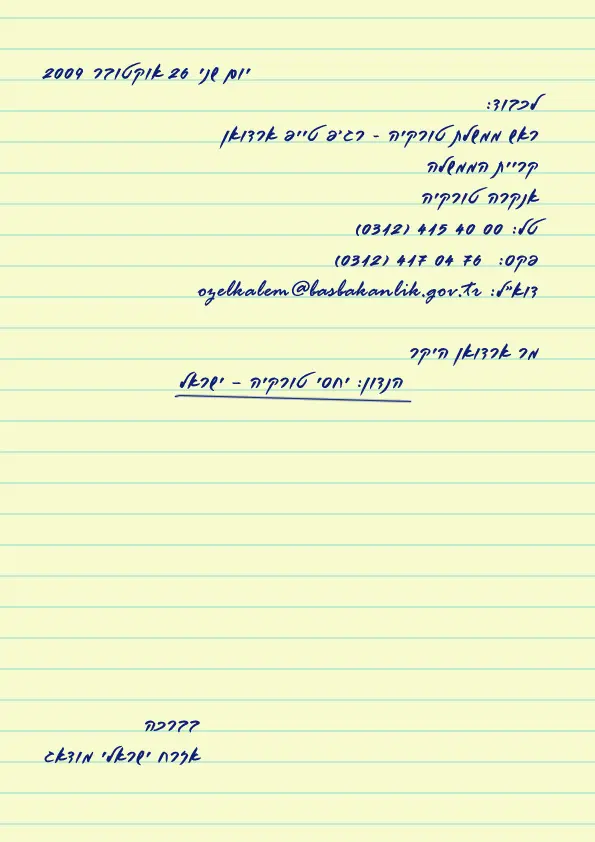 יום שני 26 אוקטובר 2009
לכבוד:
ראש ממשלת טורקיה - רג'פ טייפ ארדואן
קריית הממשלה
אנקרה טורקיה
טל: 00 40 415 (0312)
פקס: 76 04 417 (0312)
דוא"ל: ozelkalem@basbakanlik.gov.tr
מר ארדואן היקר
הנדון: יחסי טורקיה – ישראל
בברכה
אזרח ישראלי מודאג